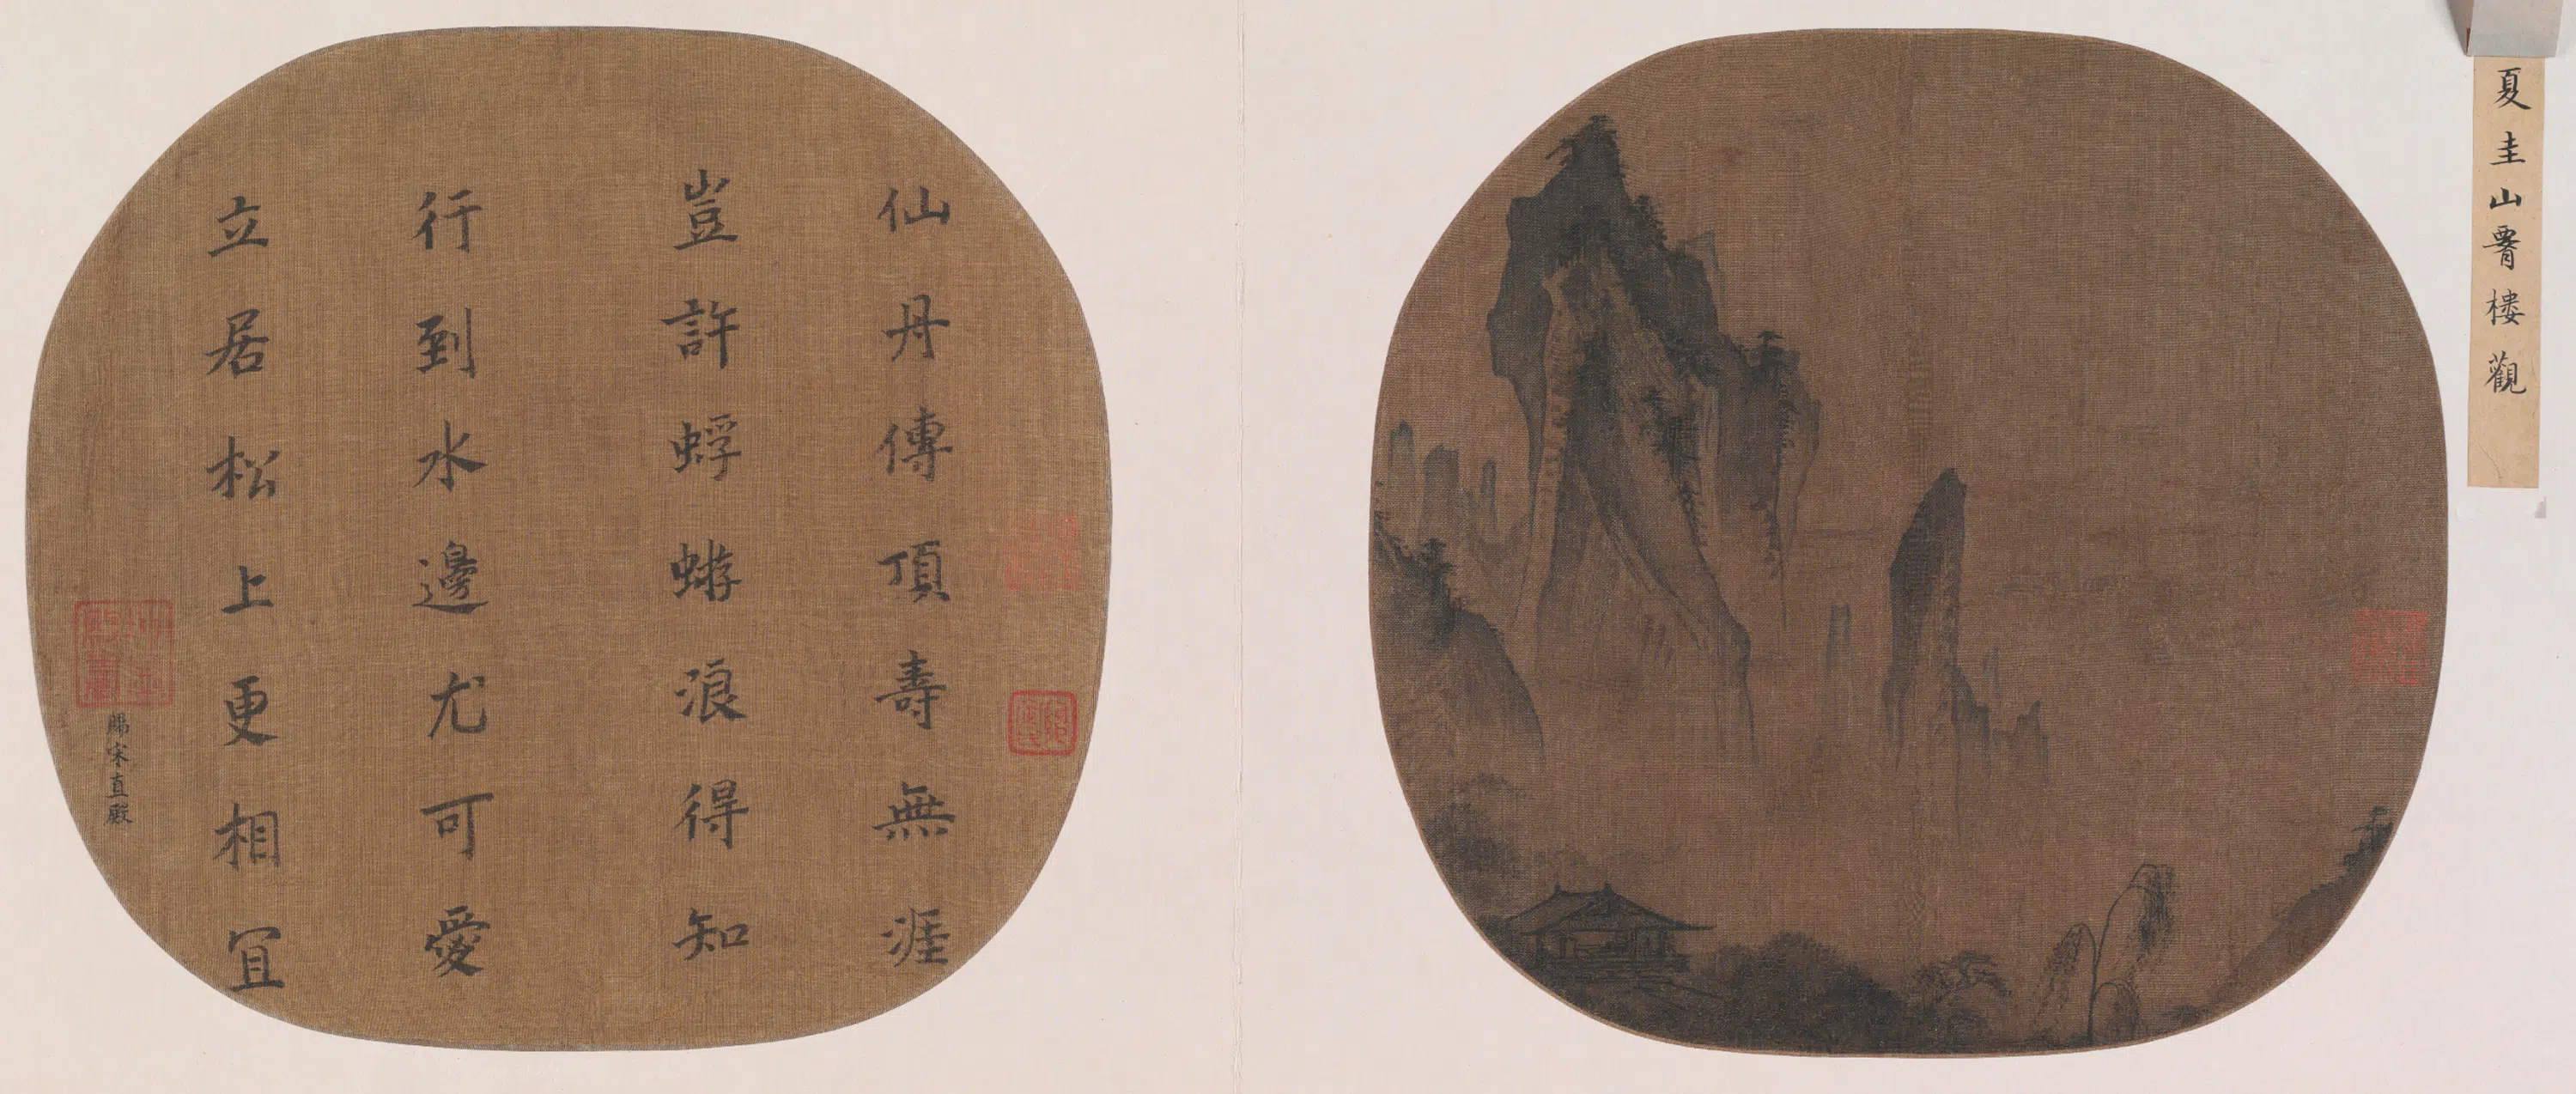 夏圭山腰樓觀
仙丹傳頂壽無涯
豈許蜉蝣浪得知
行到水邊尤可愛
立居松上更相冝
賜宋直殿